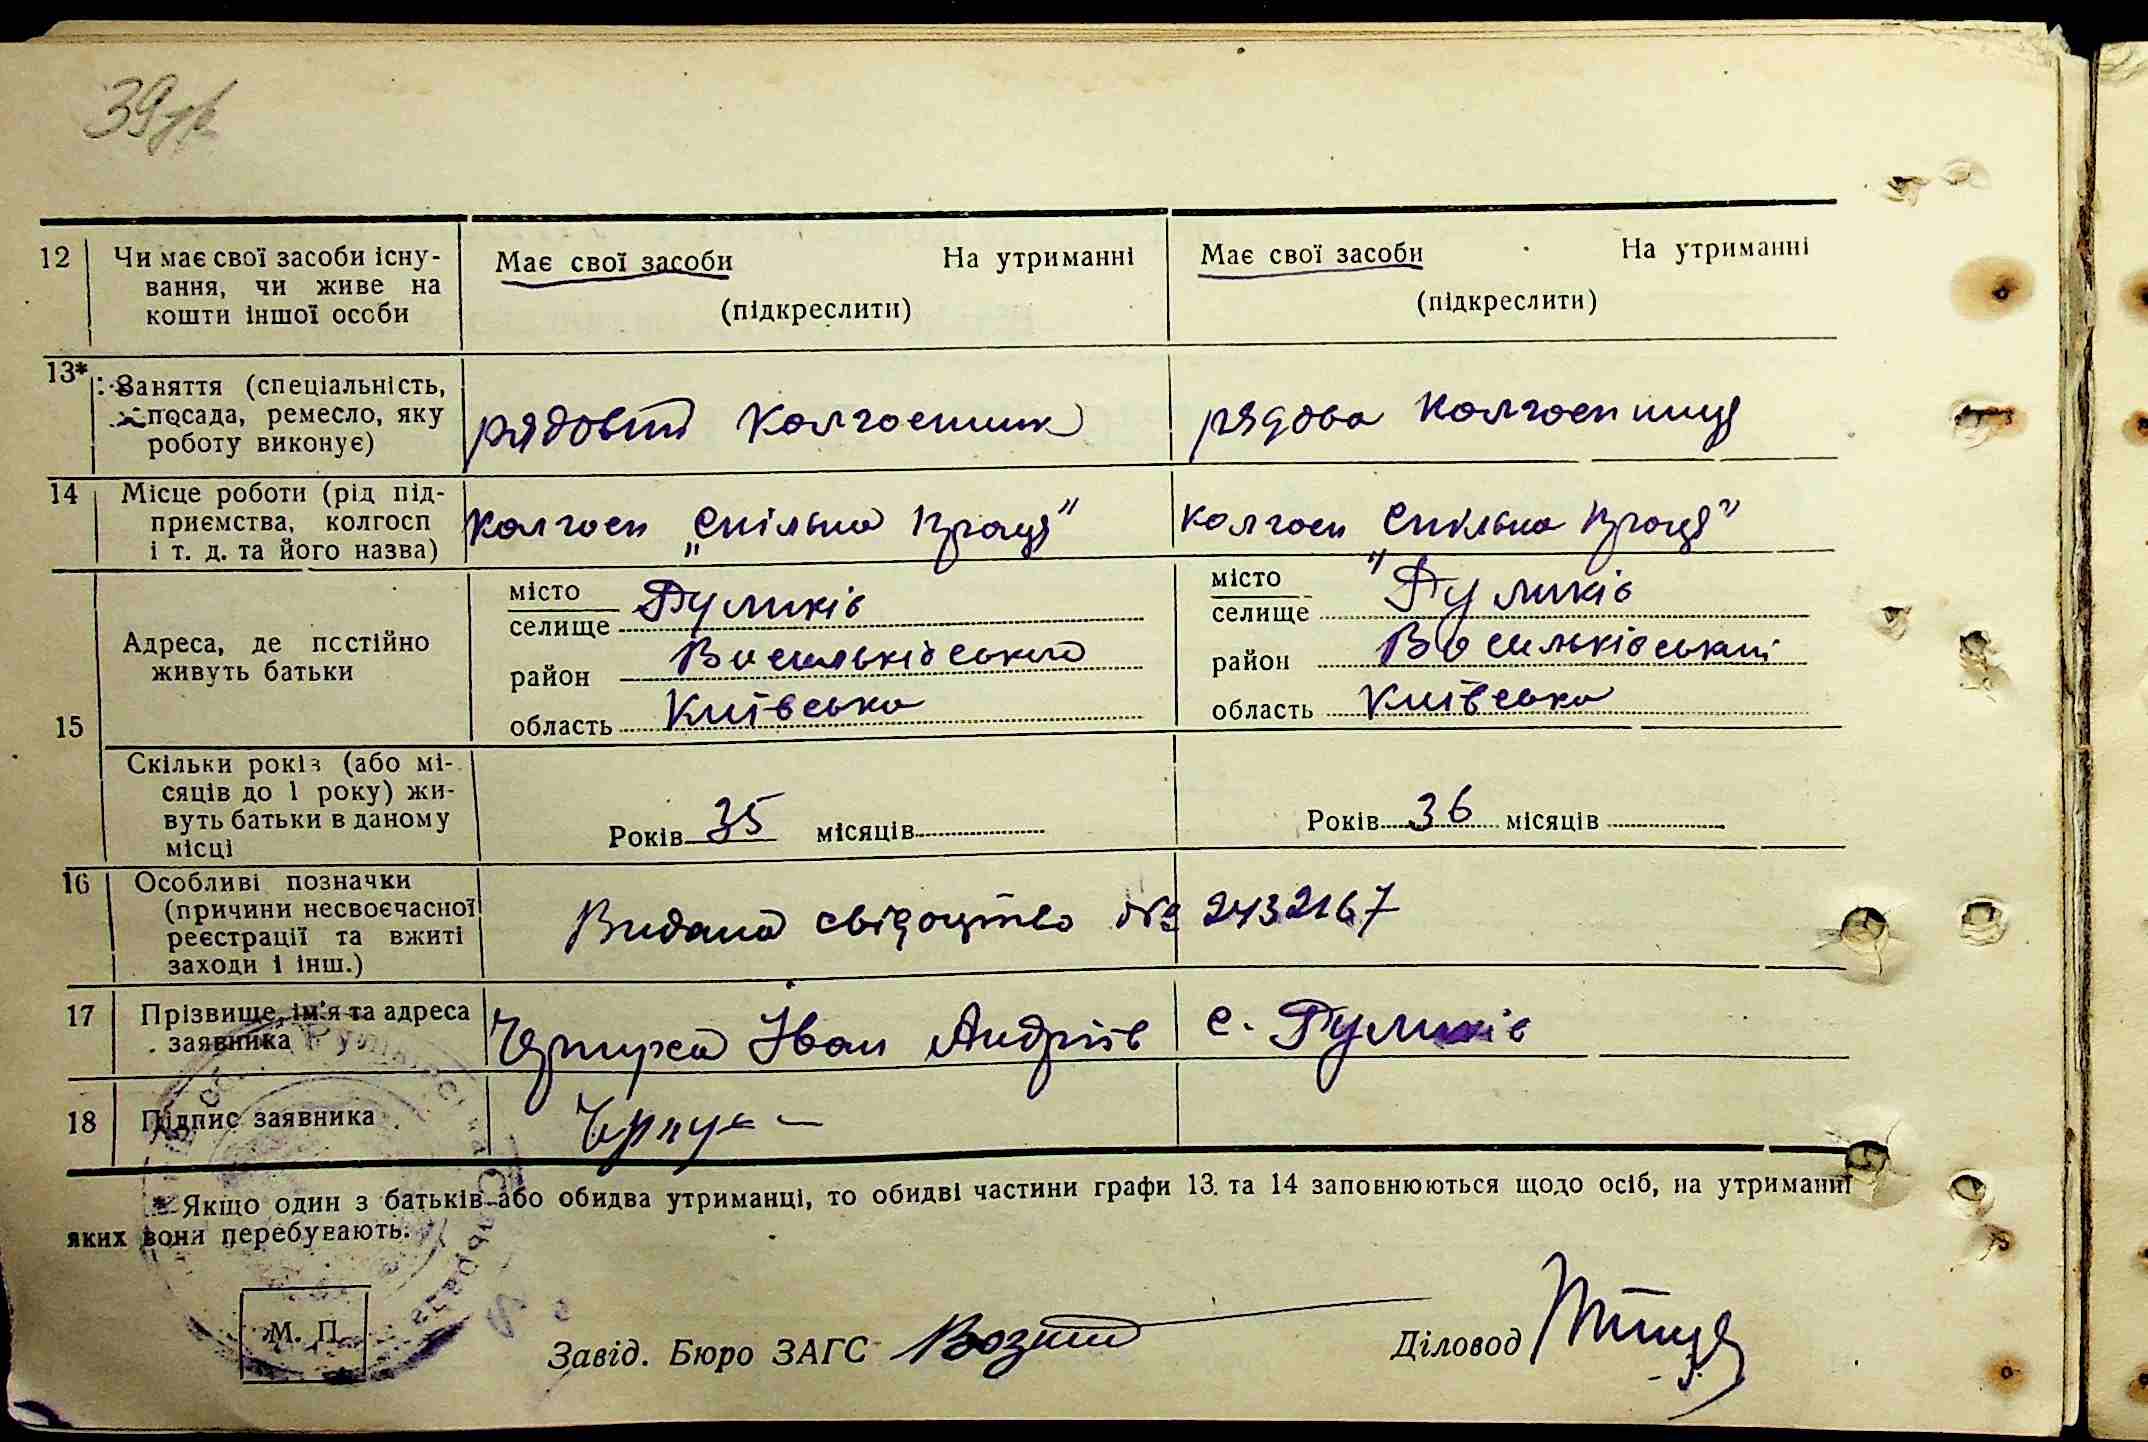 39зв
12 Чи має свої засоби існу-
вання, чи живе на
кошти іншої особи
Має свої засоби На утриманні
(підкреслити)
Має свої засоби На утриманні
(підкреслити)
13* Заняття (спеціальність,
посада, ремесло, яку
роботу виконує)
рядовий колгоспник
рядова колгоспниця
14 Місце роботи (рід під-
приємства, колгосп
і т. д. та його назва)
колгосп „Спільна праця"
колгосп „Спільна праця"
15
Адреса, де постійно
живуть батьки
місто
селище Руликів
район Васильківського
область Київська
місто
селище Руликів
район Васильківський
область Київська
Скільки років (або мі-
сяців до 1 року) жи-
вуть батьки в даному
місці
Років 35 місяців
Років 36 місяців
16 Особливі позначки
(причини несвоєчасної
реєстрації та вжиті
заходи і інш.)
Видана свідоцтво № 2432167
17 Прізвище, ім'я та адреса
заявника
Іван Андріїв с. Руликів
18 Підпис заявника
* Якщо один з батьків або обидва утриманці, то обидві частини графи 13 та 14 заповнюються щодо осіб, на утриманні
яких вони перебувають.
М. П.
Завід. Бюро ЗАГС
Діловод